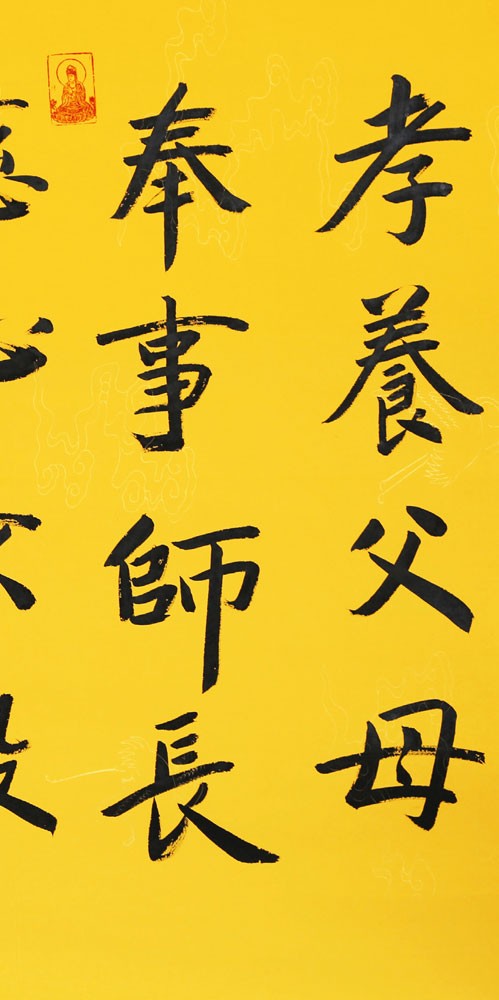 孝養父母
奉事師長